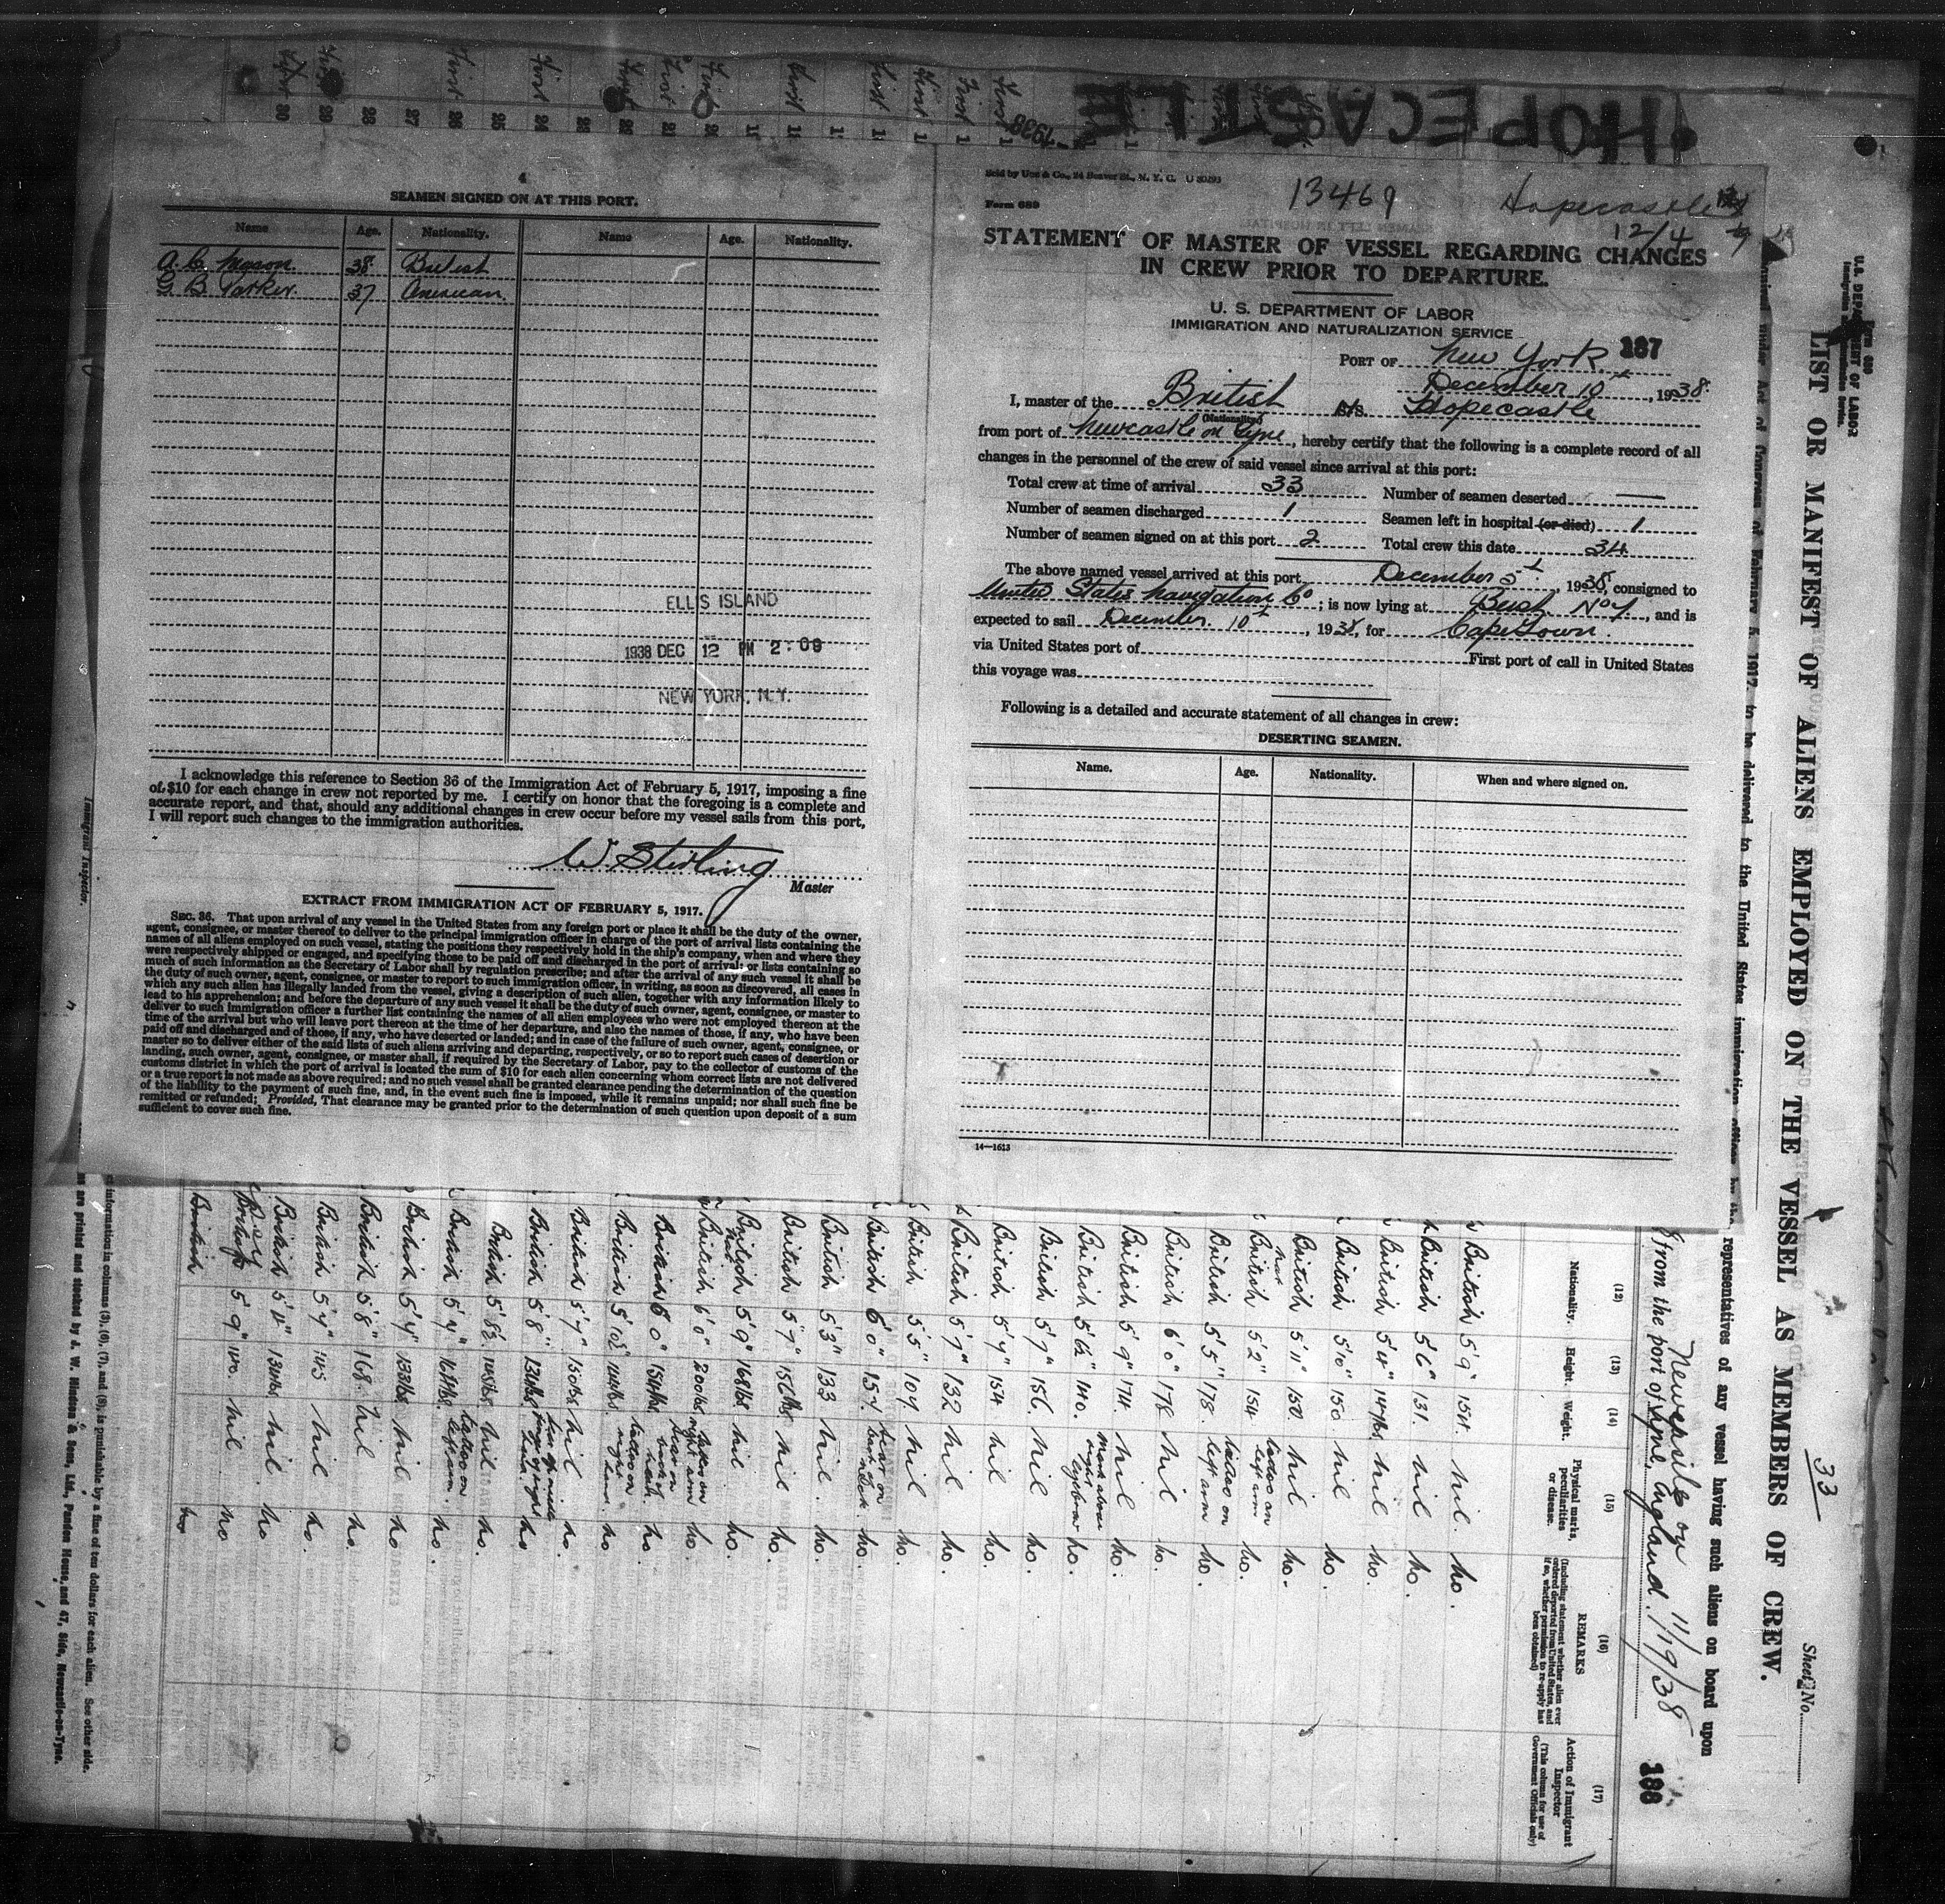 HOPECASTLE
1938
4
SEAMEN SIGNED ON AT THIS PORT.
Name Age. Nationality. Name Age. Nationality.
A. C. Mason 38 British
G. B. Parker. 37 American.
ELLIS ISLAND
1938 DEC 12 PM 2:09
NEW YORK, N.Y.
I acknowledge this reference to Section 36 of the Immigration Act of February 5, 1917, imposing a fine
of $10 for each change in crew not reported by me. I certify on honor that the foregoing is a complete and
accurate report, and that, should any additional changes in crew occur before my vessel sails from this port,
I will report such changes to the immigration authorities.
W. Stirling
Master
EXTRACT FROM IMMIGRATION ACT OF FEBRUARY 5, 1917.
SEC. 36. That upon arrival of any vessel in the United States from any foreign port or place it shall be the duty of the owner,
agent, consignee, or master thereof to deliver to the principal immigration officer in charge of the port of arrival lists containing the
names of all aliens employed on such vessel, stating the positions they respectively hold in the ship's company, when and where they
were respectively shipped or engaged, and specifying those to be paid off and discharged in the port of arrival; or lists containing so
much of such information as the Secretary of Labor shall by regulation prescribe; and after the arrival of any such vessel it shall be
the duty of such owner, agent, consignee, or master to report to such immigration officer, in writing, as soon as discovered, all cases in
which any such alien has illegally landed from the vessel, giving a description of such alien, together with any information likely to
lead to his apprehension; and before the departure of any such vessel it shall be the duty of such owner, agent, consignee, or master to
deliver to such immigration officer a further list containing the names of all alien employees who were not employed thereon at the
time of the arrival but who will leave port thereon at the time of her departure, and also the names of those, if any, who have been
paid off and discharged and of those, if any, who have deserted or landed; and in case of the failure of such owner, agent, consignee, or
master so to deliver either of the said lists of such aliens arriving and departing, respectively, or so to report such cases of desertion or
landing, such owner, agent, consignee, or master shall, if required by the Secretary of Labor, pay to the collector of customs of the
customs district in which the port of arrival is located the sum of $10 for each alien concerning whom correct lists are not delivered
or a true report is not made as above required; and no such vessel shall be granted clearance pending the determination of the question
of the liability to the payment of such fine, and, in the event such fine is imposed, while it remains unpaid; nor shall such fine be
remitted or refunded; Provided, That clearance may be granted prior to the determination of such question upon deposit of a sum
sufficient to cover such fine.
13469 Hopecastle
12/4
Form 689
STATEMENT OF MASTER OF VESSEL REGARDING CHANGES
IN CREW PRIOR TO DEPARTURE.
U. S. DEPARTMENT OF LABOR
IMMIGRATION AND NATURALIZATION SERVICE
PORT OF New York. 187
December 10th, 1938.
I, master of the British S/S. Hopecastle
(Nationality)
from port of Newcastle on Tyne, hereby certify that the following is a complete record of all
changes in the personnel of the crew of said vessel since arrival at this port:
Total crew at time of arrival 33 Number of seamen deserted —
Number of seamen discharged 1 Seamen left in hospital (or died) 1
Number of seamen signed on at this port 2 Total crew this date 34
The above named vessel arrived at this port December 5th, 1938, consigned to
United States Navigation Co; is now lying at Bush No 1, and is
expected to sail December 10th, 1938, for Capetown.
via United States port of First port of call in United States
this voyage was
Following is a detailed and accurate statement of all changes in crew:
DESERTING SEAMEN.
Name. Age. Nationality. When and where signed on.
14—1613
U.S. DEPARTMENT OF LABOR
Form 680
LIST OR MANIFEST OF ALIENS EMPLOYED ON THE VESSEL AS MEMBERS OF CREW.
Sheet No.
33
Act of Congress of February 5, 1917, to be delivered to the United States immigration officer by the representatives of any vessel having such aliens on board upon
from the port of Newcastle on Tyne, England. 11/19/38
188
(12) Nationality.
(13) Height.
(14) Weight.
(15) Physical marks, peculiarities or disease.
(16) REMARKS (Including statement whether alien ever ordered deported from United States, and if so, whether permission to re-apply has been obtained)
(17) Action of Immigrant Inspector (This column for use of Government Officials only)
British 5'9" 154. nil. no.
British 5'6" 131. nil no.
British 5'4" 147lbs. nil no.
British 5'10" 150. nil no.
British 5'11" 150. nil no.
British 5'2" 154 tattoo on left arm no.
British 5'5" 178. tattoo on left arm no.
British 6'0" 178 nil no.
British 5'9" 174. nil no.
British 5'6½" 140. mark above right eyebrow no.
British 5'7" 156. nil no.
British 5'7" 154 nil no.
British 5'7" 132 nil no.
British 5'5" 109 nil no.
British 6'0" 157. no.
British 5'3" 133 nil. no.
British 5'7" 156lbs nil no.
British 5'9" 168lbs nil no.
British 6'0" 200lbs right arm no.
British 6'0" 154lbs. no.
British 5'10½" 144lbs. tattoo on no
British 5'7" 150lbs nil no.
British 5'8" 134lbs no
British 5'8½" 145lbs nil no.
British 5'4" 164lbs. tattoo on left arm. no.
British 5'4" 133lbs. nil no
British 5'8" 168. nil no.
British 5'4" 145 nil no.
British 5'11" 134lbs nil no.
British 5'9" nil no
British no
information in columns (5), (6), (7), and (8), is punishable by a fine of ten dollars for each alien. See other side.
are printed and stocked by J. W. Hindson & Sons, Ltd., Pandon House, and 47, Side, Newcastle-on-Tyne.
Immigrant Inspector.